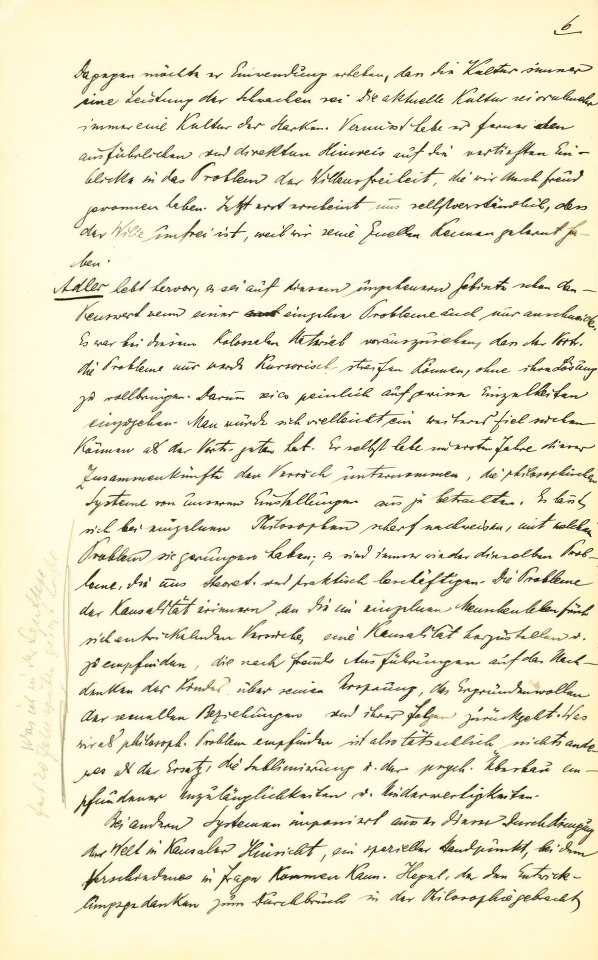 6
Dagegen möchte er Einwendung erheben, dass die Kultur immer
eine Leistung der Schwachen sei. Die aktuelle Kultur sei vielmehr
immer eine Kultur der Starken. Vermisst habe er ferner den
ausführlichen und direkten Hinweis auf die vertieften Ein-
blicke in das Problem der Willensfreiheit, die wir durch Freud
gewonnen haben. Jetzt erst erscheint uns selbstverständlich, dass
der Wille unfrei ist, weil wir seine Quellen kennen gelernt ha-
ben.
Adler hebt hervor, es sei auf diesem ungeheuren Gebiete schon den-
kenswert wenn einer einzelne Probleme auch nur anschneide.
Es war bei diesem kolossalen vorauszusehen, dass der Vortr.
die Probleme nur werde kursorisch streifen können, ohne ihre Lösung
zu vollbringen. Darum sei es peinlich auf gewisse Einzelheiten
einzugehen. Man würde sich vielleicht ein weiteres Ziel suchen
können als der Vortr. getan hat. Er selbst habe im ersten Jahre dieser
Zusammenkünfte den Versuch unternommen, die philosophischen
Systeme von unseren Einstellungen aus zu betrachten. Es lasse
sich bei einzelnen Philosophen scharf nachweisen, mit welchem
Problem sie gerungen haben; es sind immer wieder dieselben Prob-
leme, die uns theoret. und praktisch beschäftigen. Die Probleme
der Kausalität erinnern an die im einzelnen Menschenleben früh
sich entwickelnden Versuche, eine Kausalität herzustellen u.
zu empfinden, die nach Freuds Ausführungen auf das Nach-
denken des Kindes über seinen Ursprung, das Ergründenwollen
der sexuellen Beziehungen und ihrer Folgen zurückgeht. Was
wir als philosoph. Problem empfinden ist also tatsächlich nichts ande-
res als der Ersatz, die Sublimierung u. der psych. Überbau em-
pfundener Unzulänglichkeiten u. Minderwertigkeiten.
Bei andern Systemen imponiert ausser dieser Durchdringung
der Welt in kausaler Hinsicht, ein spezieller Standpunkt, bei dem
Verschiedenes in Frage kommen kann. Hegel, der den Entwick-
lungsgedanken zum Durchbruch in der Philosophie gebracht